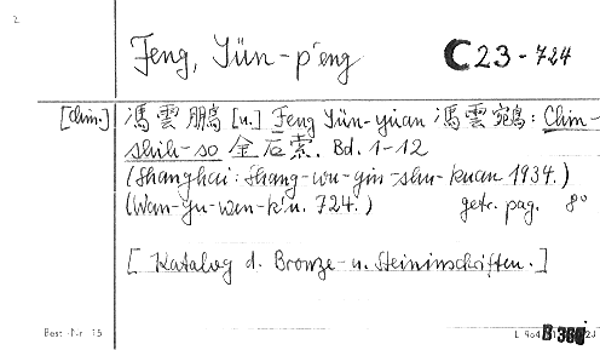 2.
Feng, Yün-p'eng C 23-724
[chin.] 馮雲鵬 [u.] Feng Yün-yüan 馮雲鵷: Chin-
shih-so 金石索. Bd. 1-12
(Shanghai: Shang-wu-yin-shu-kuan 1934.)
(Wan-yu-wen-k'u. 724.) getr. pag. 8°
[Katalog d. Bronze- u. Steininschriften.]
Best.-Nr. 15 B 360